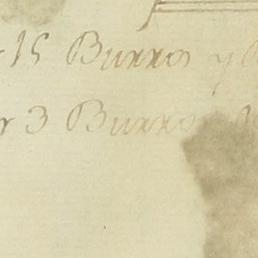 15 Burros y
3 Burros